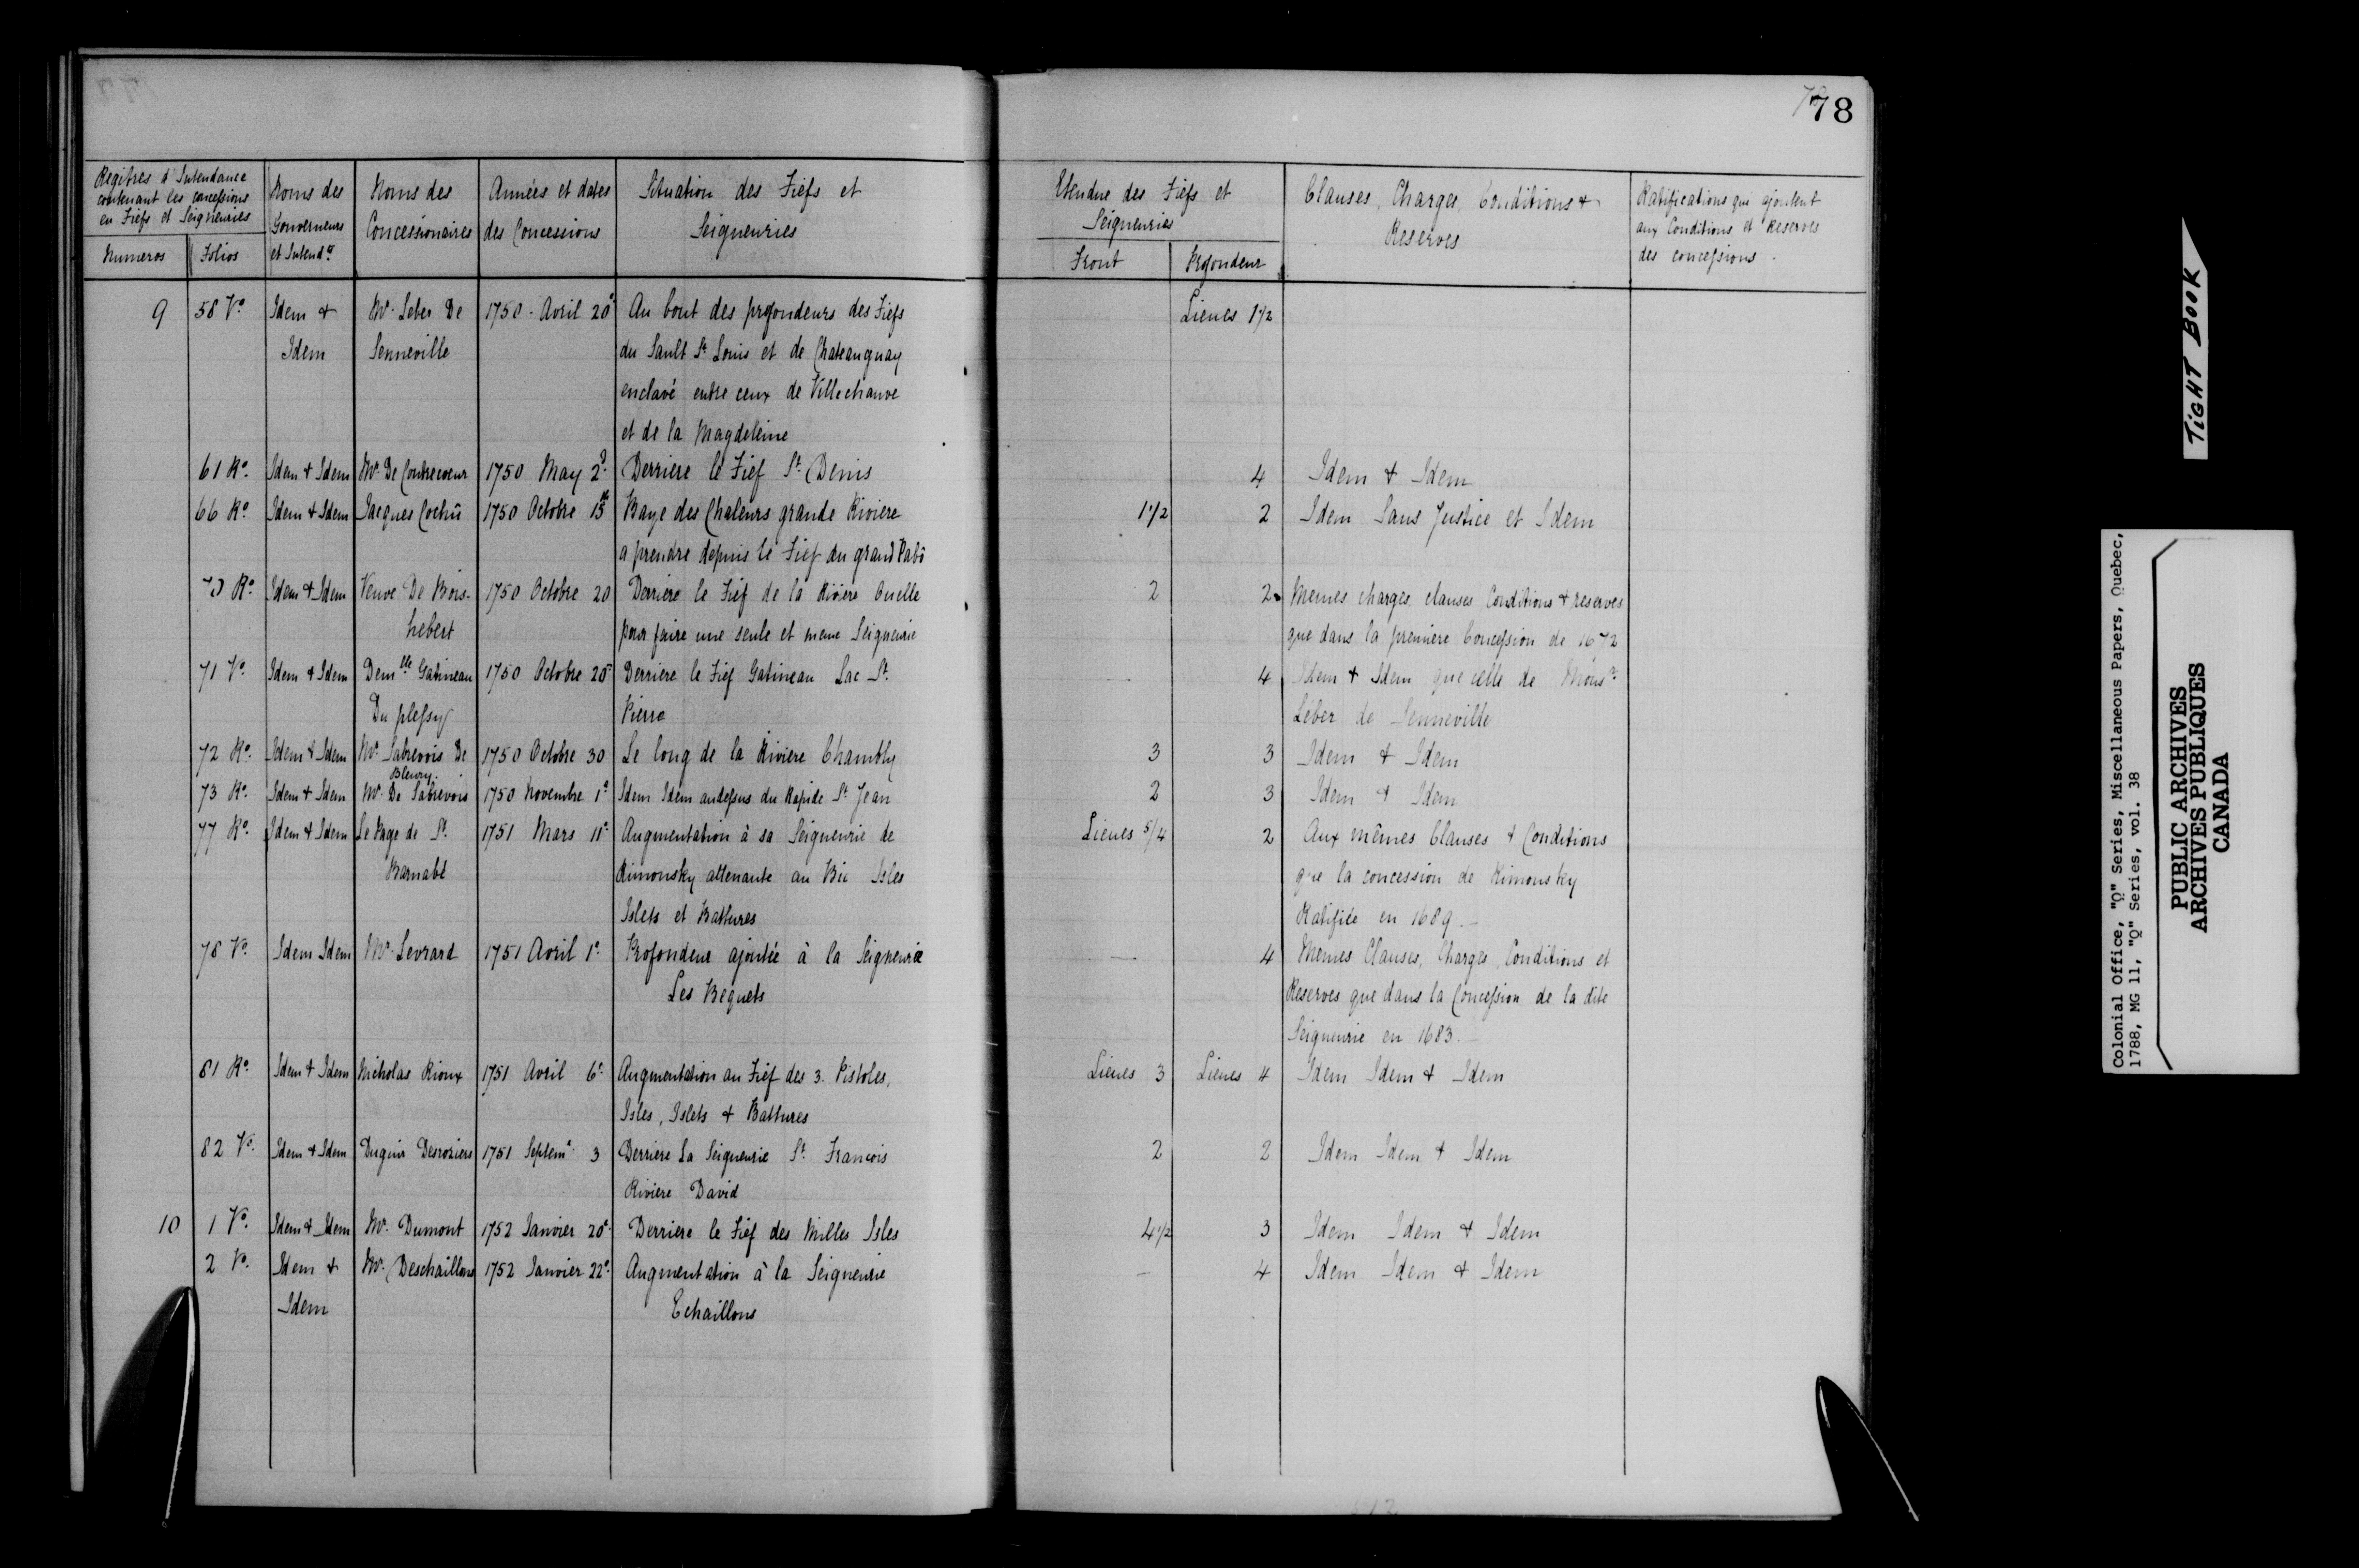 78
Regitres d'Intendance
contenant les concessions
en Fiefs et Seigneuries
Numeros Folios
Noms des
Gouverneurs
et Intend.ts
Noms des
Concessionaires
Années et dates
des Concessions
Situation des Fiefs et
Seigneuries
Etendue des Fiefs et
Seigneuries
Front Profondeur
Clauses, Charges, Conditions &
Reserves
Ratifications qui ajoutent
aux Conditions et Reserves
des concessions.
9 58 Vo. Idem & Mr. Leber De 1750 - Avril 20e Au bout des profondeurs des Fiefs Lieues 1 1/2
Idem Senneville du Sault St. Louis et de Chateauguay
enclavé entre ceux de Villechauve
et de la Magdeleine
61 Ro. Idem & Idem Mr. De Contrecoeur 1750 May 2e Derriere le Fief St. Denis 4 Idem & Idem
66 Ro. Idem & Idem Jacques Cochû 1750 Octobre 15 Baye des Chaleurs grande Riviere 1 1/2 2 Idem Sans Justice et Idem
a prendre depuis le Fief du grand Pabô
70 Ro. Idem & Idem Veuve De Bois- 1750 Octobre 20 Derriere le Fief de la Rivière Ouelle 2 2 Memes charges, clauses Conditions & reserves
hebert pour faire une seule et meme Seigneurie que dans la premiere Concession de 1672
71 Vo. Idem & Idem Demlle Gatineau 1750 Octobre 20e Derriere le Fief Gatineau Lac St. 4 Idem & Idem que celle de Monsr.
Du plessy Pierre Léber de Senneville
72 Ro. Idem & Idem Mr. Sabrevois De 1750 Octobre 30 Le long de la Riviere Chambly 3 3 Idem & Idem
Bleury.
73 Ro. Idem & Idem Mr. De Sabrevois 1750 Novembre 1e Idem Idem audessus du Rapide St. Jean 2 3 Idem & Idem
77 Ro. Idem & Idem Le Page de St. 1751 Mars 11e Augmentation à sa Seigneurie de Lieues 5/4 2 Aux mêmes Clauses & Conditions
Barnabé Rimousky attenante au Bic Isles que la concession de Rimousky
Islets et Battures Ratifiée en 1689. -
78 Vo. Idem Idem Mr. Levrard 1751 Avril 1e Profondeur ajoutée à la Seigneurie — 4 Memes Clauses, Charges, Conditions et
Les Bequets Reserves que dans la Concession de la dite
Seigneurie en 1683. -
81 Ro. Idem & Idem Nicholas Rioux 1751 Avril 6e Augmentation au Fief des 3. Pistoles, Lieues 3 Lieues 4 Idem Idem & Idem
Isles, Islets & Battures
82 Vo. Idem & Idem Desrosiers 1751 Septemr. 3 Derriere La Seigneurie St. Francois 2 2 Idem Idem & Idem
Riviere David
10 1 Vo. Idem & Idem Mr. Dumont 1752 Janvier 20e Derriere le Fief des Milles Isles 4 1/2 3 Idem Idem & Idem
2 Vo. Idem & Mr. Deschaillons 1752 Janvier 22e Augmentation à la Seigneurie — 4 Idem Idem & Idem
Idem Echaillons
TIGHT BOOK
Colonial Office, "Q" Series, Miscellaneous Papers, Quebec,
1788, MG 11, "Q" Series, vol. 38
PUBLIC ARCHIVES
ARCHIVES PUBLIQUES
CANADA